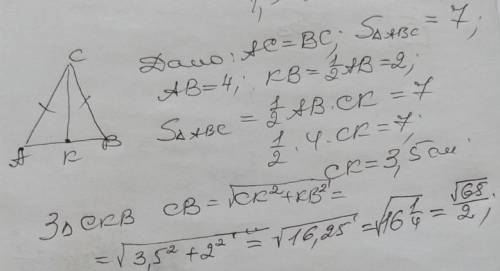 Дано: AC = BC; S△ABC = 7;
AB = 4; KB = 1/2 AB = 2;
S△ABC = 1/2 AB · CK = 7
1/2 · 4 · CK = 7;
CK = 3,5 см.
C
A K B
З △CKB CB = √(CK² + KB²) =
= √(3,5² + 2²) = √16,25 = √(16 1/4) = √65/2;